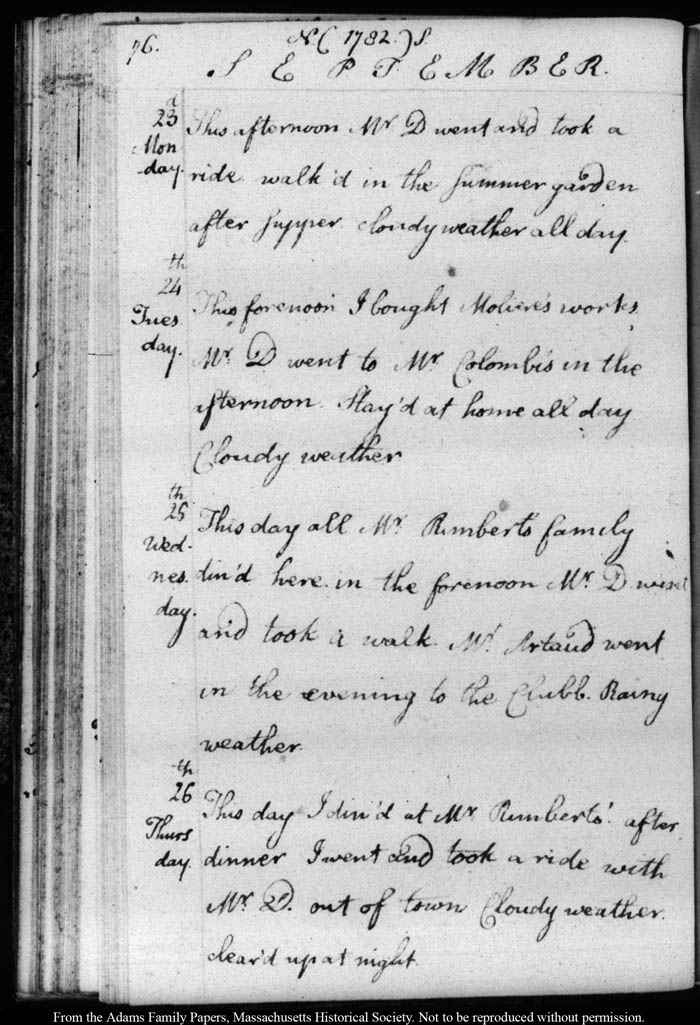 76.
N.( 1782.)S.
SEPTEMBER.
23 Monday.
This afternoon Mr. D went and took a
ride walk'd in the Summer garden
after supper. cloudy weather all day.
24th Tuesday.
This forenoon I bought Moliere's works.
Mr. D went to Mr. Colombi's in the
afternoon. Stay'd at home all day
Cloudy weather
25th Wednesday.
This day all Mr. Rimbert's family
din'd here. in the forenoon Mr. D. went
and took a walk. Mr. Artaud went
in the evening to the Clubb. Rainy
weather.
26th Thursday.
This day I din'd at Mr. Rimberts'. after
dinner I went and took a ride with
Mr. D. out of town Cloudy weather.
clear'd up at night.
From the Adams Family Papers, Massachusetts Historical Society. Not to be reproduced without permission.